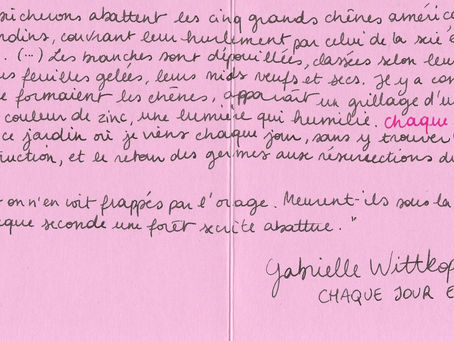 bûcherons abattent les cinq grands chênes améric
ndins, couvrant leur hurlement par celui de la scie
. (...) Les branches sont dépouillées, classées selon leu
s feuilles gelées, leurs nids neufs et secs. Il y a
e formaient les chênes, apparaît un grillage d'u
couleur de zinc, une lumière qui humilie. chaque
ce jardin où je viens chaque jour, sans y trouver
uction, et le retour des germes aux résurrections du
on n'en voit frappés par l'orage. Meurent-ils sous la
que seconde une forêt secrète abattue."
Gabrielle Wittkop
CHAQUE JOUR E